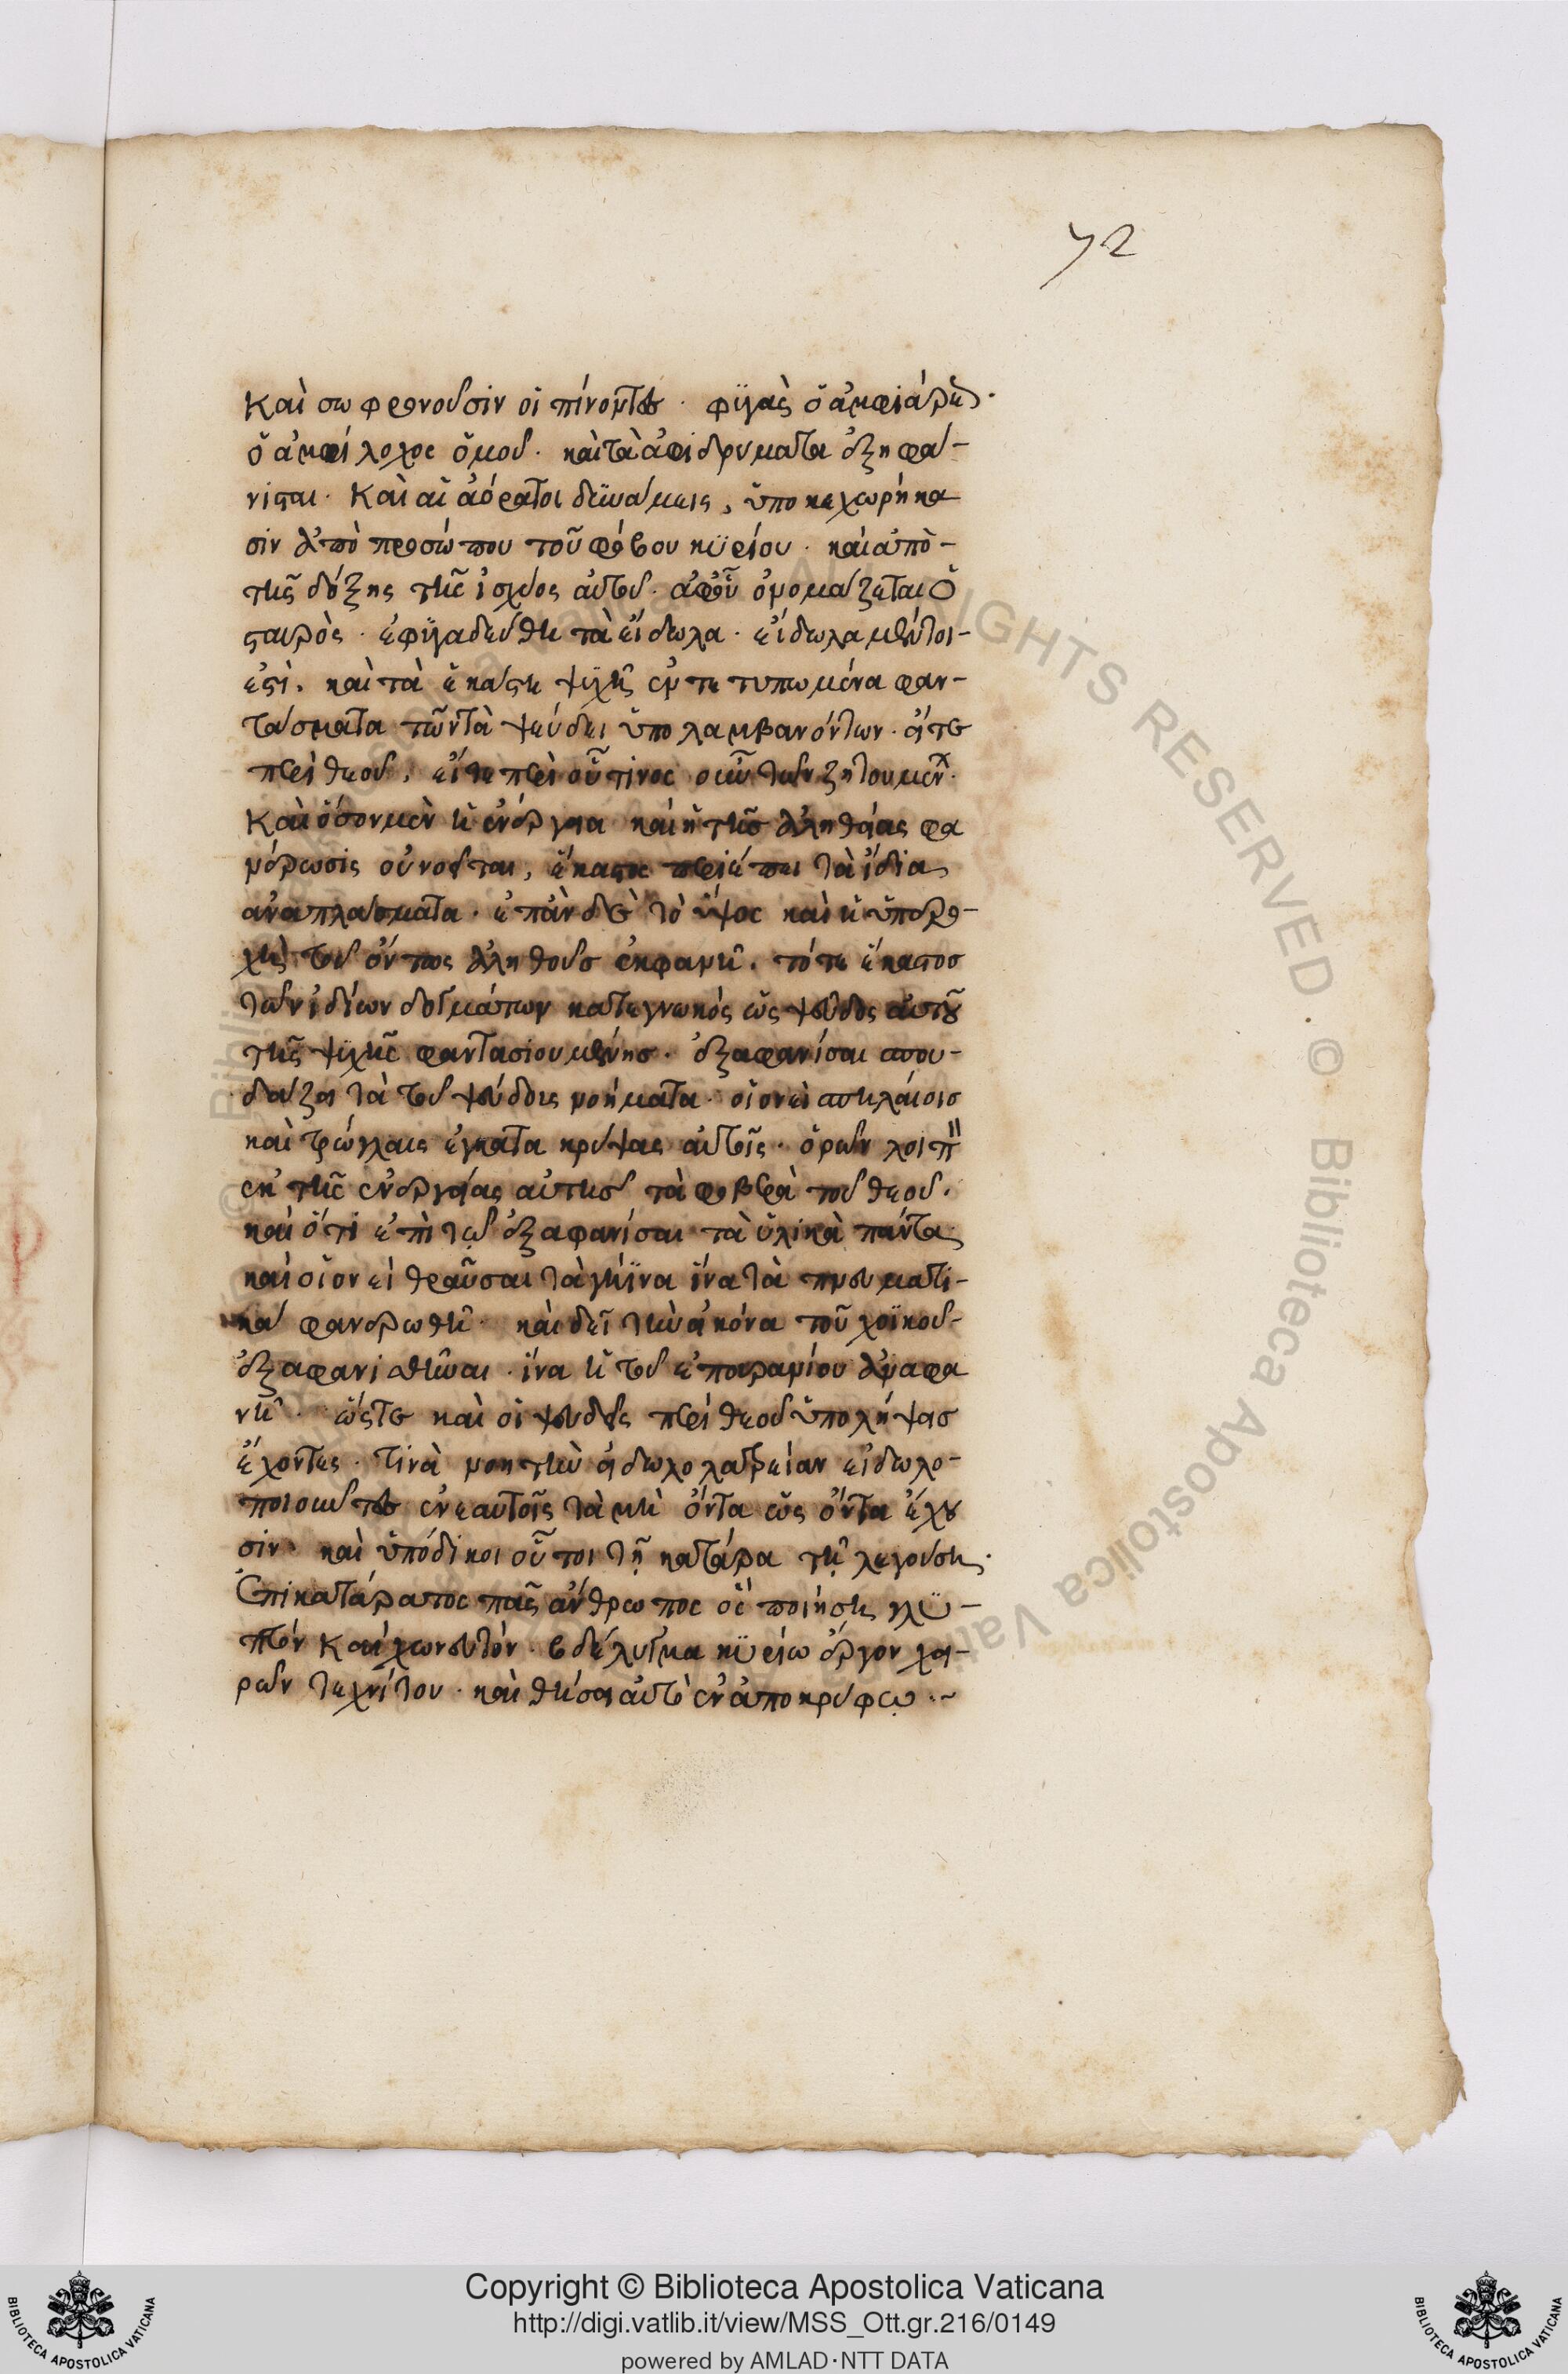 72
καὶ σωφρονοῦσιν οἱ πίνοντες · φϋγὰς ὁ ἀμφιάρεως ·
ὁ ἀμφίλοχος ὁμοῦ · καὶ τὰ ἀφιδρύματα ἐξηφά-
νισται · Καὶ αἱ ἀόρατοι δϋνάμεις, ὑποκεχωρήκα
σιν ἀπὸ προσώπου τοῦ φόβου κϋρίου · καὶ ἀπὸ -
τῆς δόξης τῆς ἰσχύος αὐτοῦ · ἀφοῦ ὀνομάζεται ὁ
σταυρὸς · ἐφϋγαδεύθη τὰ εἴδωλα · εἴδωλα μέντοι -
ἐστὶ · καὶ τὰ ἑκάστη ψϋχῆ ἐντετυπωμένα φαν-
τάσματα τῶν τὰ ψεύδει ὑπολαμβανόντων · εἴτε
περὶ θεοῦ, εἴτε περὶ οὗτινος οὖν τῶν ζητουμέν ·
Καὶ ὅσον μὲν ἡ ἐνέργεια καὶ ἡ τῆς ἀληθείας φα
νέρωσις οὐνοεῖται, ἕκαστος περιέπει τὰ ἴδια
ἀναπλάσματα · ἐπὰν δὲ τὸ ὕψος καὶ ἡ ὑπερο-
χὴ τοῦ ὄντος ἀληθοῦς ἐκφανῆ · τότε ἕκαστος
τῶν ἰδίων δογμάτων κατεγνωκός ὡς ψεῦδος αὐτοῦ
τῆς ψϋχῆς φαντασιουμένης · ἐξαφανίσαι σπου-
δάζει τὰ τοῦ ψεύδους νοήματα · οἱονεὶ σπηλαίοις
καὶ τρώγλαις ἐγκατακρύψας αὐτοῖς · ὁρῶν λοιπ
ἐκ τῆς ἐνεργείας αὐτῆς τὰ φοβερὰ τοῦ θεοῦ ·
καὶ ὅτι ἐπὶ τῷ ἐξαφανίσαι τὰ ὑλικὰ πάντα
καὶ οἱονεὶ θραῦσαι τὰ γήϊνα ἵνα τὰ πνευματι-
κὰ φανερωθῆ · καὶ δεῖ τὴν εἰκόνα τοῦ χοϊκοῦ -
ἐξαφανισθῆναι · ἵνα ἡ τοῦ ἐπουρανίου ἀναφα
νῆ · ὥστε καὶ οἱ ψευδεῖς περὶ θεοῦ ὑπολήψεις
ἔχοντες · τινὰ νοητὴν εἰδωλολατρείαν εἰδωλο-
ποιοῦντες ἐνεαυτοῖς τὰ μὴ ὄντα ὡς ὄντα ἔχου
σιν · καὶ ὑπόδικοι οὗτοι τῇ κατάρα τῇ λεγούση ·
Ἐπικατάρατος πᾶς ἄνθρωπος ὃς ποιήσει γλϋ -
πτὸν καὶ χωνευτόν · βδέλυγμα κϋρίω ἔργον χει-
ρῶν τεχνίτου · καὶ θήσει αὐτὸ ἐν ἀποκρύφῳ · ~
Copyright © Biblioteca Apostolica Vaticana
http://digi.vatlib.it/view/MSS_Ott.gr.216/0149
powered by AMLAD·NTT DATA